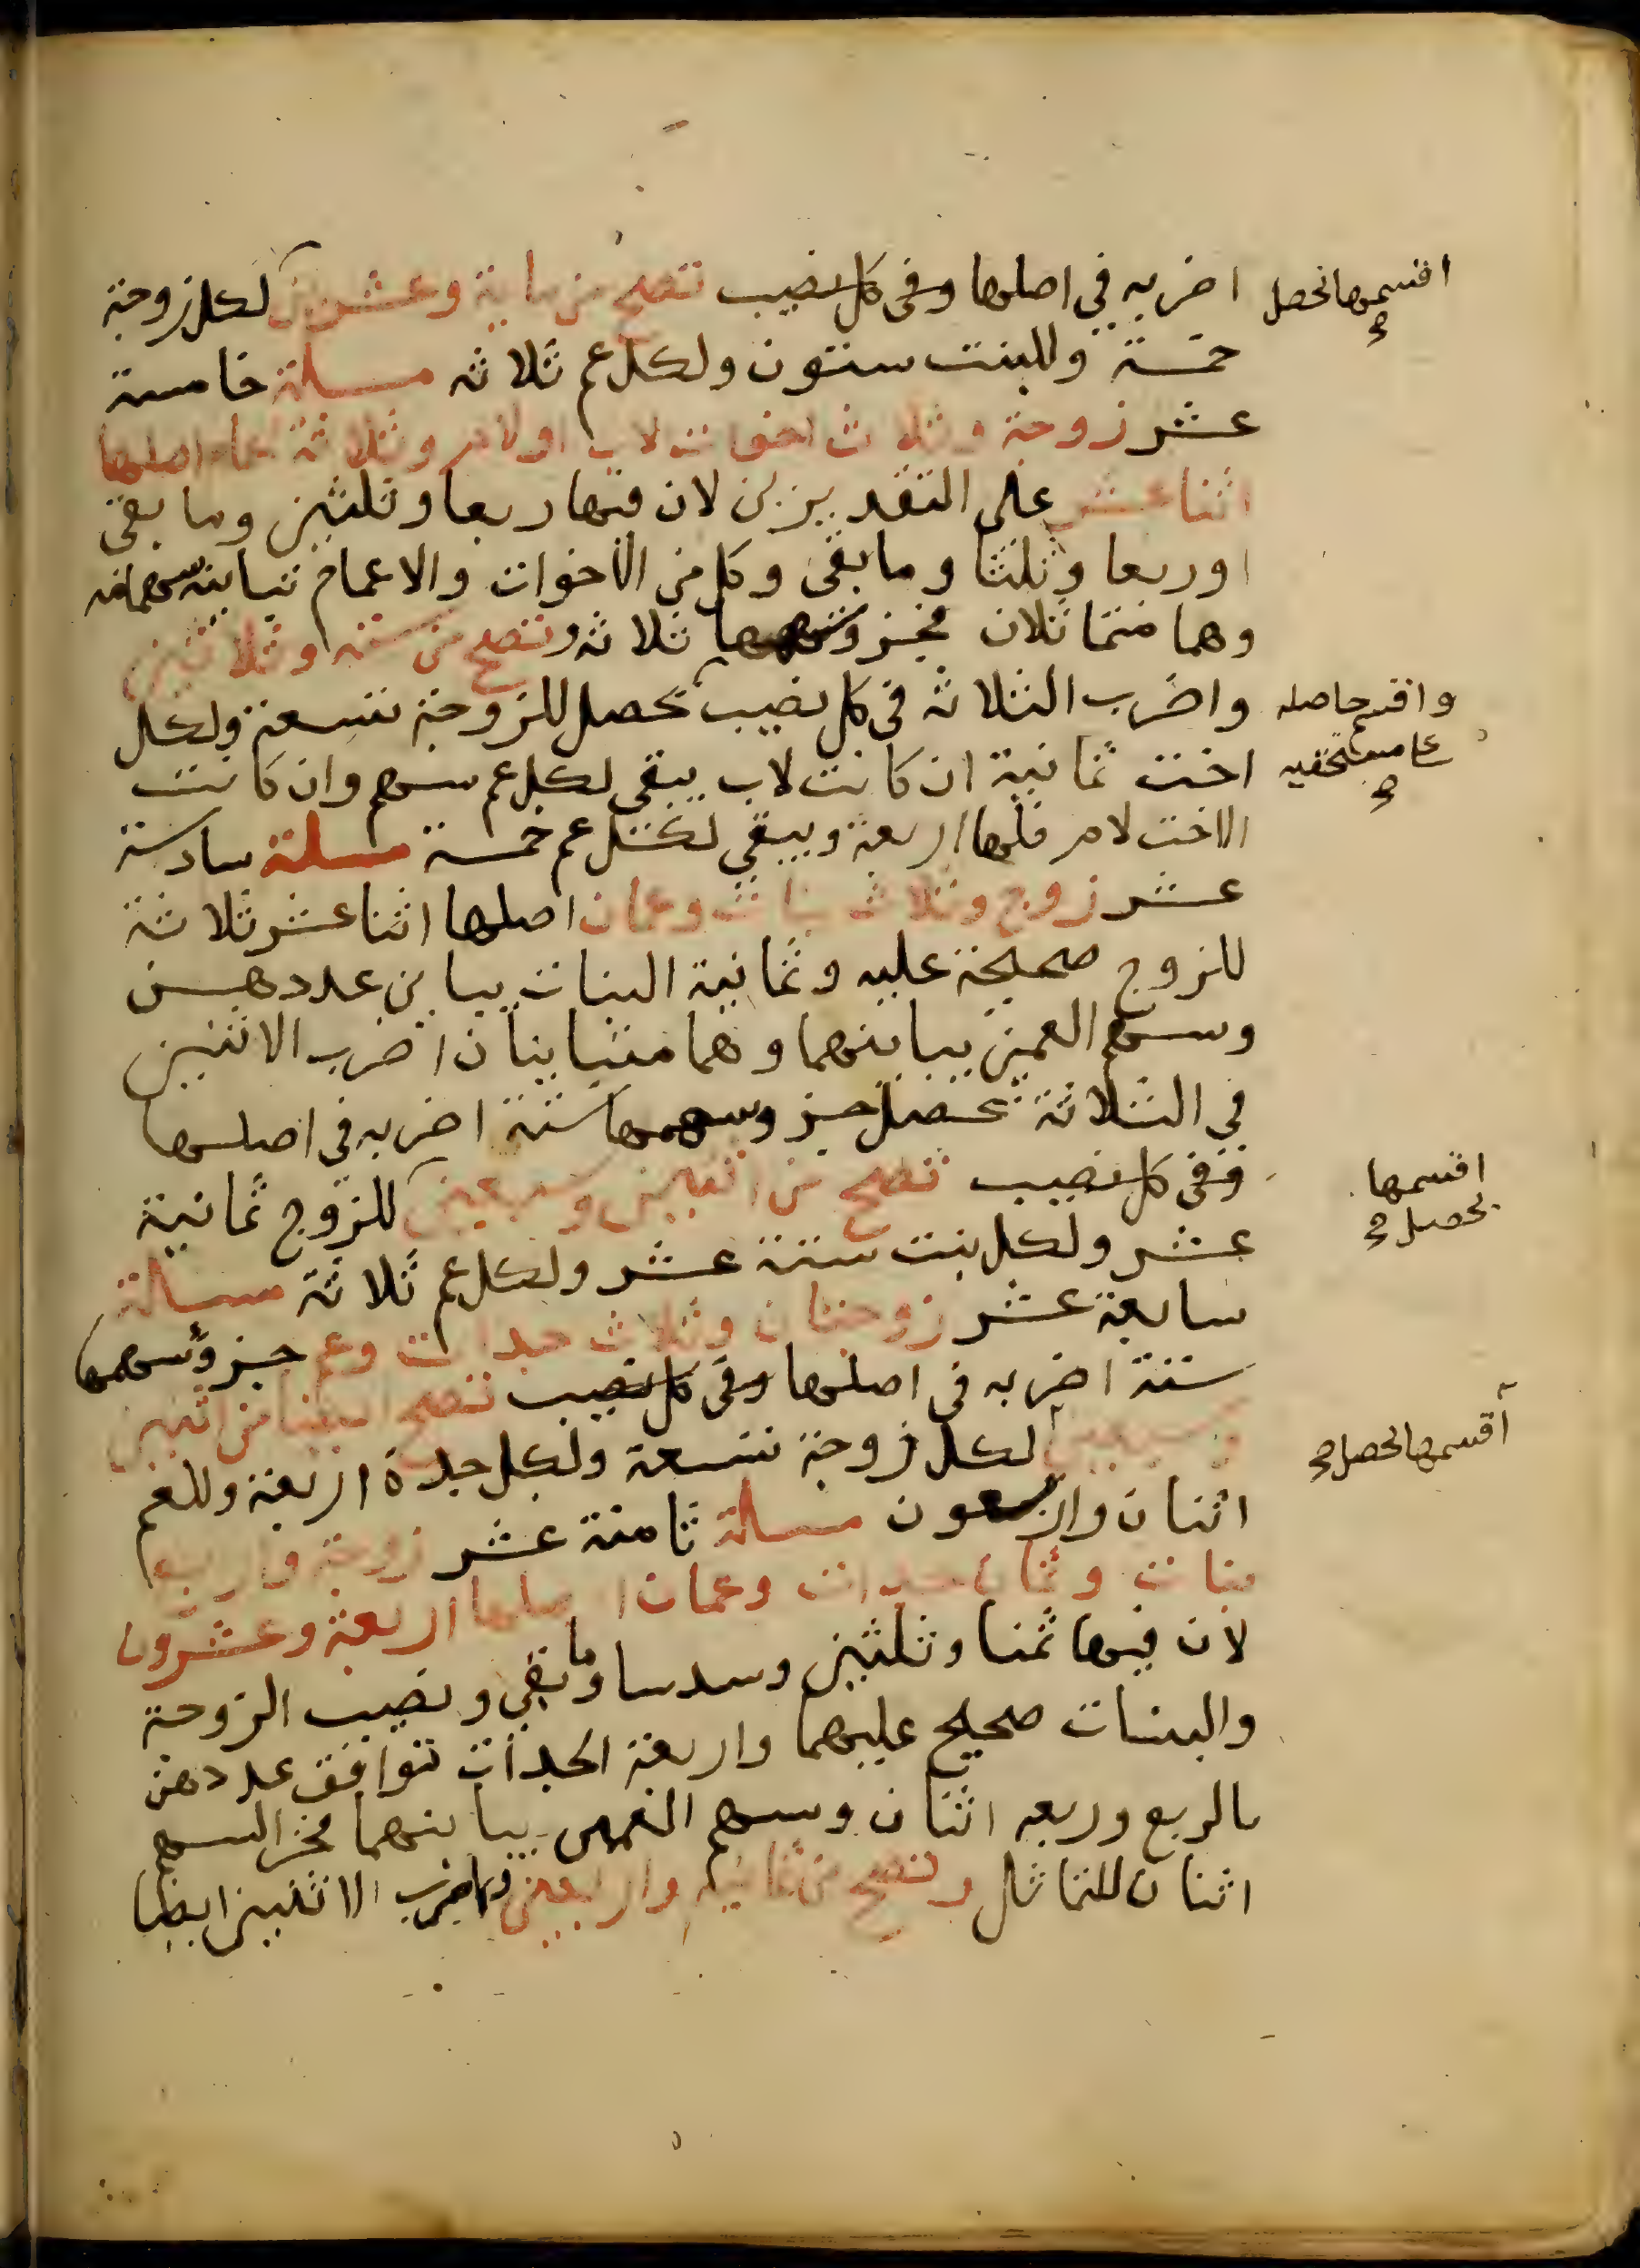 اضربه في اصلها وفى كل نصيب تصح من ماية وعشرين لكل زوجة
خمسة وللبنت ستون ولكل عم ثلاثه مسلة خامسة
عشر زوجة وثلاث اخوات لاب او لام وثلاثة اعمام اصلها
اثنا عشر على التقديرين لان فيها ربعا وثلثين وما بقى
او ربعا وثلثا وما بقى وكل من الاخوات والاعمام تباينه سهامه
وهما متماثلان فجزو سهمها ثلاثه وتصح من سته وثلاثين
واضرب الثلاثه فى كل نصيب تحصل للزوجة تسعة ولكل
اخت ثمانية ان كانت لاب يبقى لكل عم سهم وان كانت
الاخت لام فلها اربعة ويبقى لكل عم خمسة مسلة سادسة
عشر زوج وثلاث بنات وعمان اصلها اثنا عشر ثلاثة
للزوج صحيحة عليه وثمانية البنات يباين عددهن
وسهم العمين يباينهما وهما متباينان اضرب الاثنين
في الثلاثة تحصل جزو سهمها ستة اضربه فى اصلها
وفى كل نصيب تصح من اثنين وسبعين للزوج ثمانية
عشر ولكل بنت ستة عشر ولكل عم ثلاثة مسالة
سابعة عشر زوجتان وثلاث جدات وعم جزو سهمها
ستة اضربه فى اصلها وفى كل نصيب تصح ايضا من اثنين
وسبعين لكل زوجة تسعة ولكل جدة اربعة وللعم
اثنان واربعون مسالة ثامنة عشر زوجة واربع
بنات وثمان جدات وعمان اصلها اربعة وعشرون
لان فيها ثمنا وثلثين وسدسا وما بقى ونصيب الزوجة
والبنات صحيح عليهما واربعة الجدات توافق عددهن
بالربع وربعه اثنان وسهم العمين يباينهما فجز السهم
اثنان للتماثل وتصح من ثمانيه واربعين واضرب الاثنين ايضا
اقسمها تحصل
واقسم حاصله
على مستحقيه
اقسمها
تحصل
اقسمها تحصل